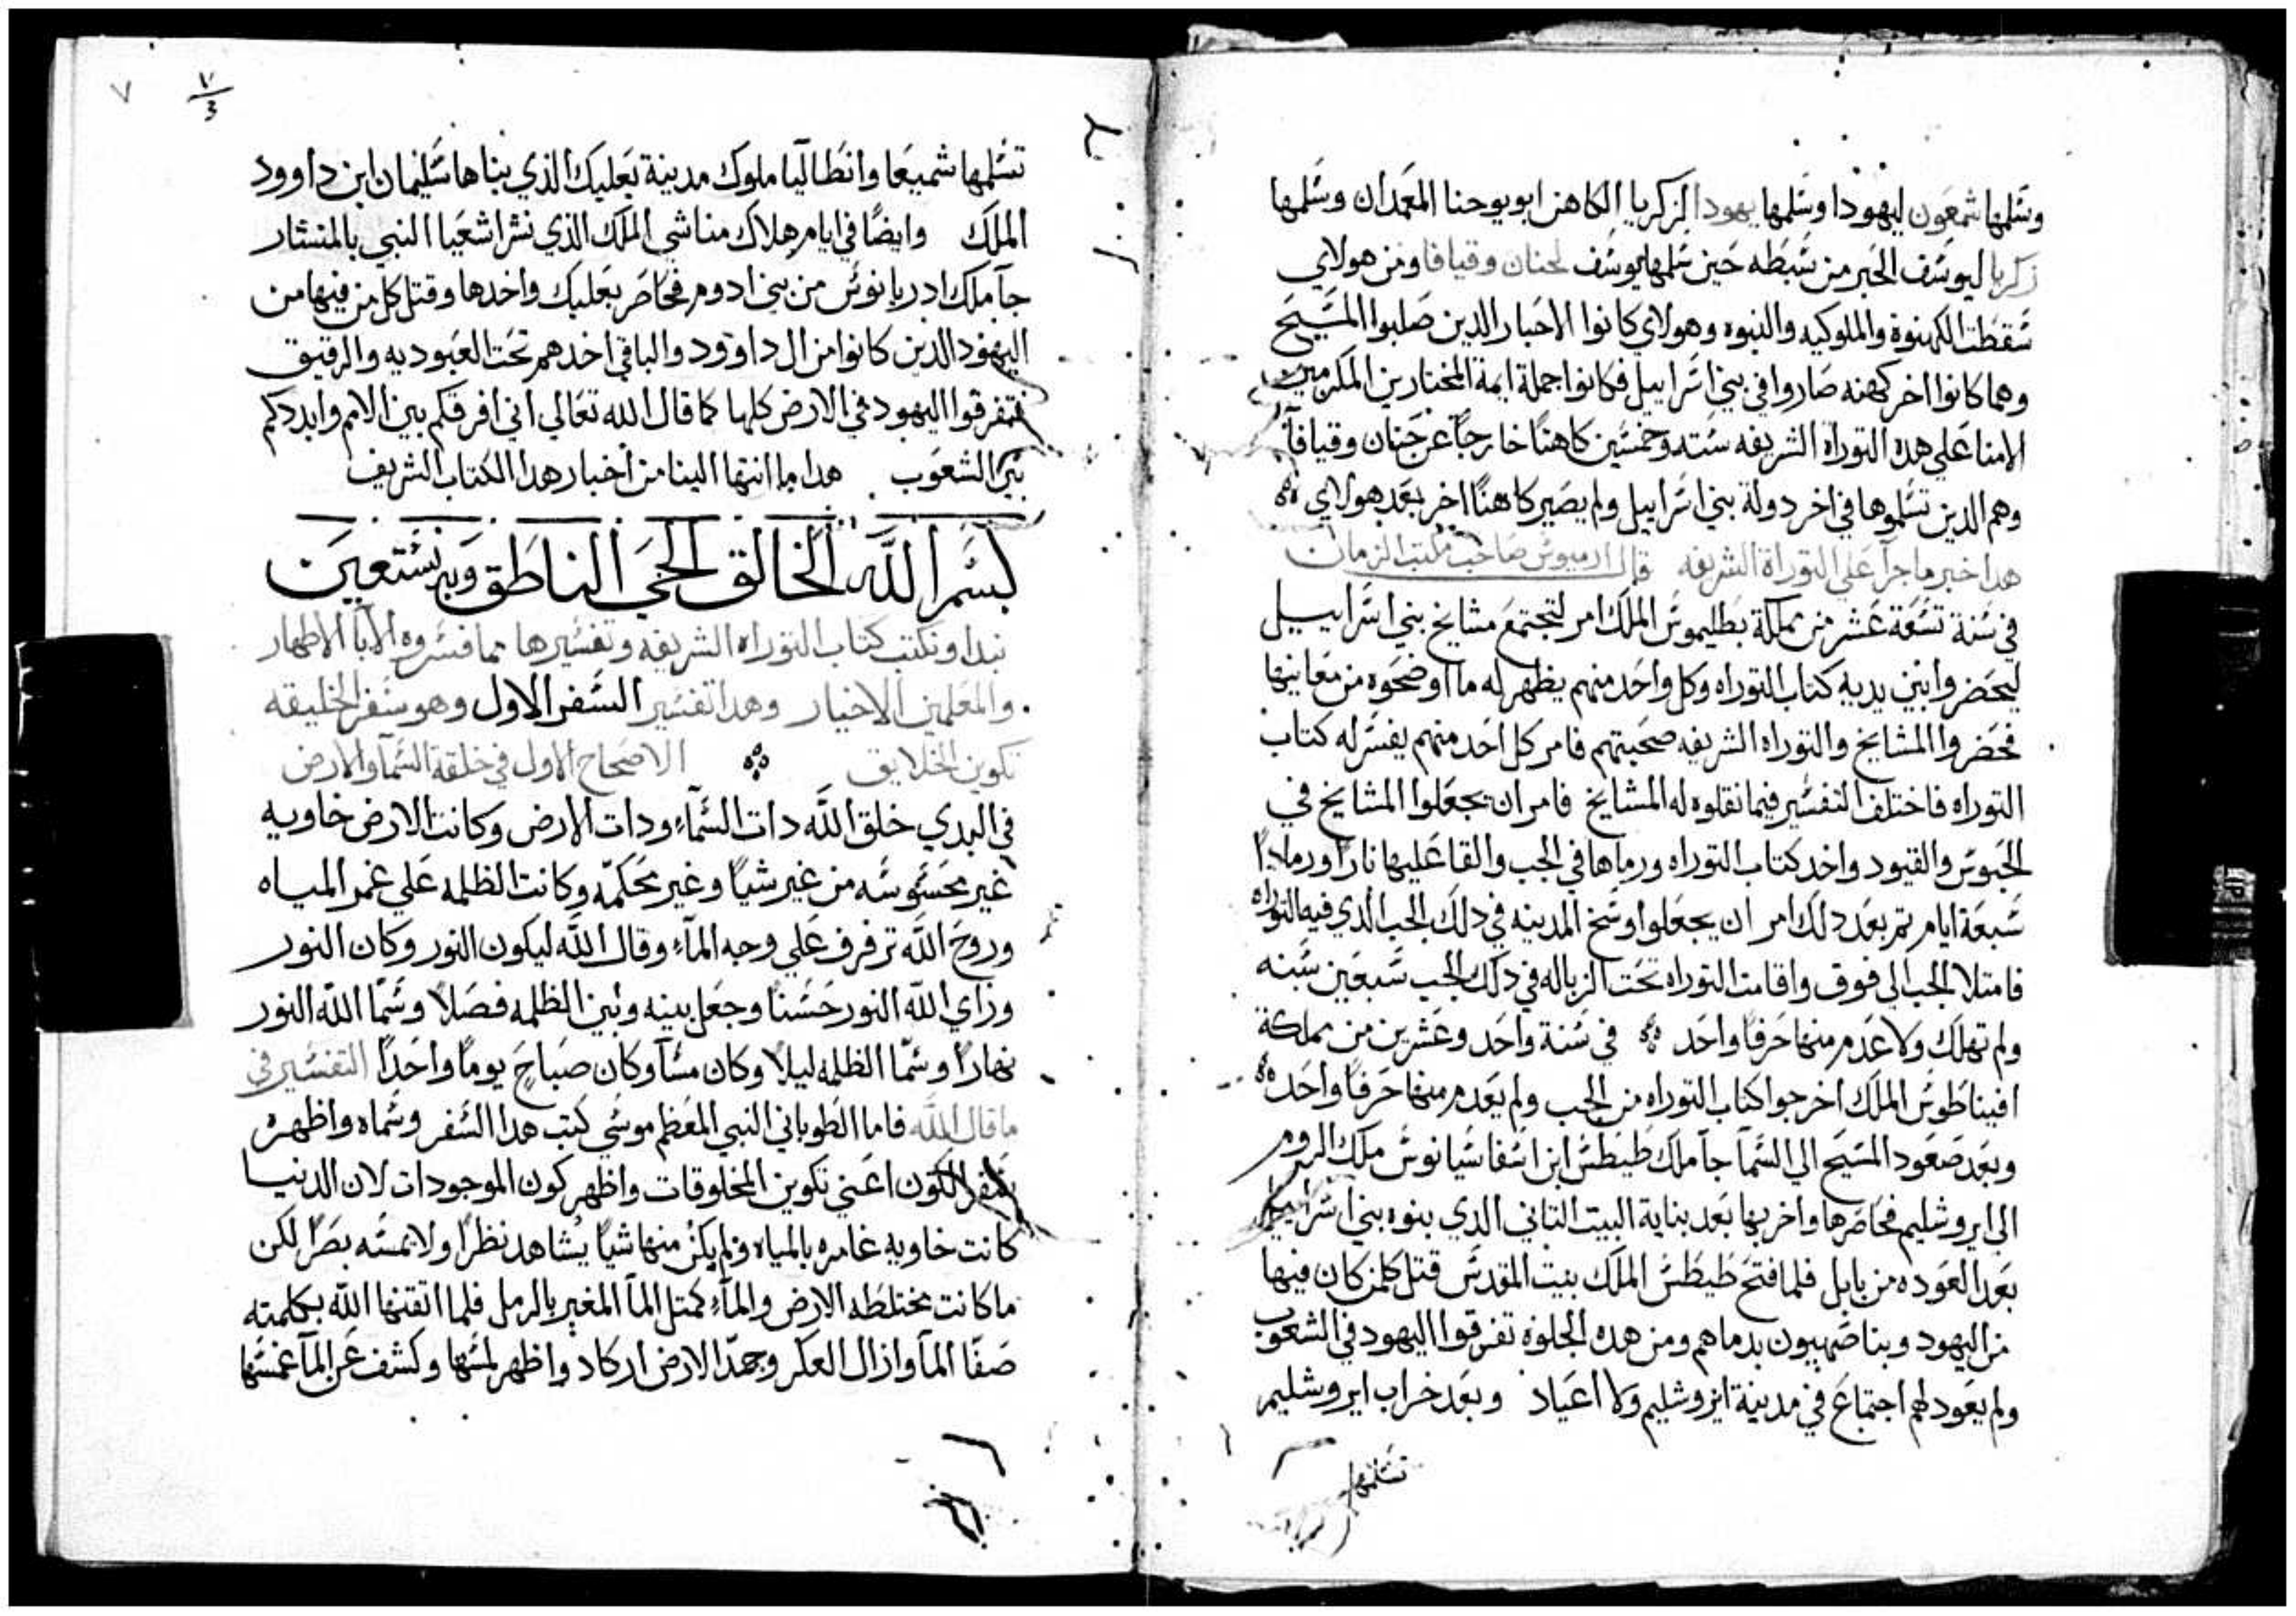 وسلمها شمعون ليهودا وسلمها يهودا لزكريا الكاهن ابو يوحنا المعمدان وسلمها
زكريا ليوسف الحبر من سبطه حين سلمها يوسف لحنان وقيافا ومن هولاي
سقطت الكهنوة والملوكيه والنبوه وهولاي كانوا الاحبار الدين صلبوا المسيح
وهما كانوا اخر كهنه صاروا في بني اسراييل فكانوا جملة ايمة المختارين المكرمين
الامنا علي هده التوراه الشريفه سته وخمسين كاهنا خارجا عن حنان وقيافا
وهم الدين تسلموها في اخر دولة بني اسراييل ولم يصير كاهنا اخر بعد هولاي
هدا خبر ماجرا علي التوراة الشريفه قال ارميوس صاحب مكتب الزمان
في سنة تسعة عشر من مملكة بطليموس الملك امر لتجتمع مشايخ بني اسراييل
ليحضروا بين يديه كتاب التوراه وكل واحد منهم يظهر له ما اوضحوه من معانيها
فحضروا المشايخ والتوراه الشريفه صحبتهم فامر كل احد منهم يفسر له كتاب
التوراه فاختلف التفسير فيما نقلوه له المشايخ فامر ان يجعلوا المشايخ في
الحبوس والقيود واخد كتاب التوراه ورماها في الجب والقا عليها نارا ورمادا
سبعة ايام تم بعد دلك امر ان يجعلوا وسخ المدينه في دلك الجب الدي فيه التوراه
فامتلا الجب الي فوق واقامت التوراه تحت الزباله في دلك الجب سبعين سنه
ولم تهلك ولا عدم منها حرفا واحد في سنة واحد وعشرين من مملكة
افيناطوس الملك اخرجوا كتاب التوراه من الجب ولم يعدم منها حرفا واحد
وبعد صعود المسيح الي السما جا ملك طيطس ابن اسفاسيانوس ملك الروم
الي ايروشليم فحاصرها واخربها بعد بناية البيت التاني الدي بنوه بني اسراييل
بعد العوده من بابل فلما فتح طيطس الملك بيت المقدس قتل كلمن كان فيها
من اليهود وبنا صهييون بدماهم ومن هده الجلوه تفرقوا اليهود في الشعوب
ولم يعود لهم اجتماع في مدينة ايروشليم ولا اعياد وبعد خراب ايروشليم
تسلمها
٧
تسلمها شميعا وانطاليا ملوك مدينة بعلبك الذي بناها سليمان ابن داوود
الملك وايضا في ايام هلاك مناشي الملك الذي نشر اشعيا النبي بالمنشار
جا ملك ادريانوس من بني ادوم فحاصر بعلبك واخدها وقتل كل من فيها من
اليهود الدين كانوا من ال داوود والباقي اخدهم تحت العبوديه والرقيق
فتفرقوا اليهود في الارض كلها كما قال الله تعالي اني افرقكم بين الامم وابددكم
بين الشعوب هدا ما انتها الينا من اخبار هدا الكتاب الشريف
بسم الله الخالق الحي الناطق وبه نستعين
نبدا ونكتب كتاب التوراه الشريفه وتفسيرها مما فسروه الابا الاطهار
والمعلمين الاخيار وهدا تفسير السفر الاول وهو سفر الخليقه
تكوين الخلايق الاصحاح الاول في خلقة السما والارض
في البدي خلق الله دات السماء ودات الارض وكانت الارض خاويه
غير محسوسه من غير شيا وغير محكمه وكانت الظلمه علي غمر المياه
وروح الله ترفرف علي وجه الماء وقال الله ليكون النور وكان النور
وراي الله النور حسنا وجعل بينه وبين الظلمه فصلا وسما الله النور
نهارا وسما الظلمه ليلا وكان مسا وكان صباح يوما واحدا التفسير في
ما قال الله فاما الطوباني النبي المعظم موسي كتب هدا السفر وسماه واظهره
بسفر الكون اعني تكوين المخلوقات واظهر كون الموجودات لان الدنيا
كانت خاويه غامره بالمياه ولم يكن منها شيا يشاهد نظرا ولا يمسه بصرا لكن
ما كانت مختلطه الارض والماء كمتل الما المغير بالرمل فلما اتقنها الله بكلمته
صفا الما وازال العكر وجمد الارض اركاد واظهر لمسها وكشف عن الما غمسها